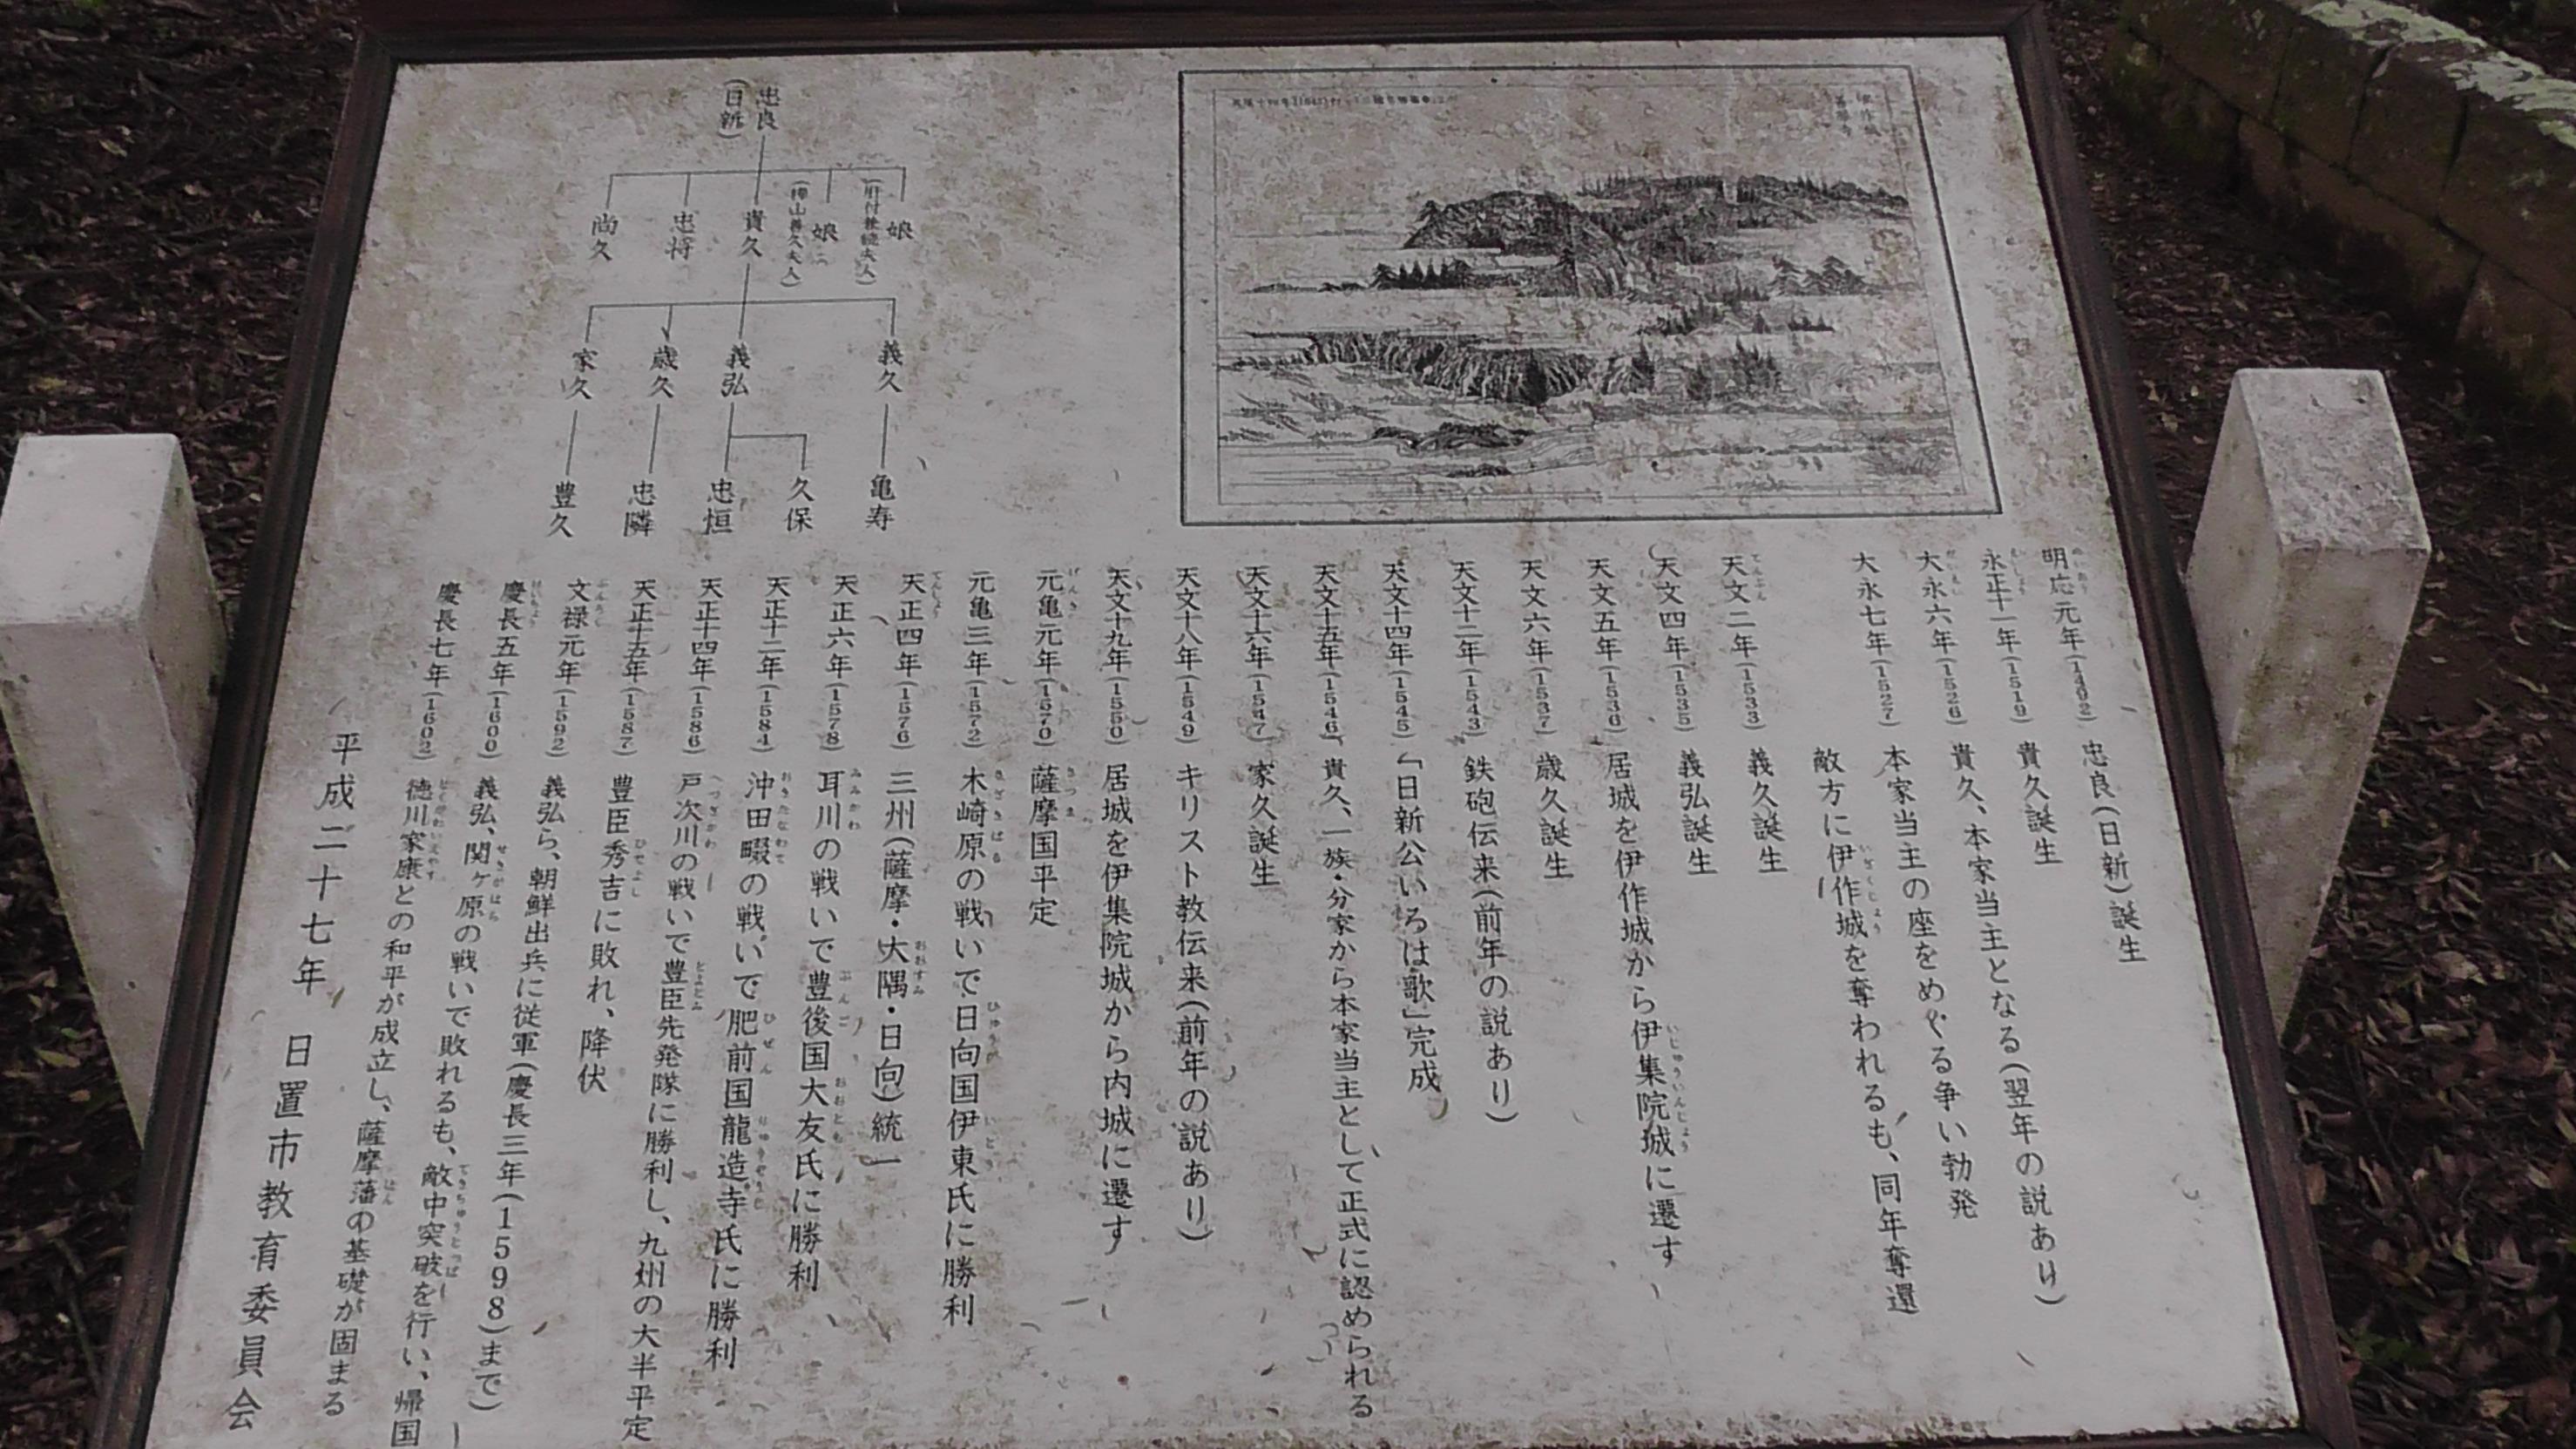 忠良
(日新)
娘
娘
貴久
忠将
尚久
義久
義弘
歳久
家久
亀寿
久保
忠恒
忠隣
豊久
明応元年(1492) 忠良(日新)誕生
永正十一年(1519) 貴久誕生
大永六年(1526) 貴久、本家当主となる(翌年の説あり)
大永七年(1527) 本家当主の座をめぐる争い勃発
敵方に伊作城を奪われるも、同年奪還
天文二年(1533) 義久誕生
天文四年(1535) 義弘誕生
天文五年(1536) 居城を伊作城から伊集院城に遷す
天文六年(1537) 歳久誕生
天文十二年(1543) 鉄砲伝来(前年の説あり)
天文十四年(1545) 「日新公いろは歌」完成
天文十五年(1546) 貴久、一族・分家から本家当主として正式に認められる
天文十六年(1547) 家久誕生
天文十八年(1549) キリスト教伝来(前年の説あり)
天文十九年(1550) 居城を伊集院城から内城に遷す
元亀元年(1570) 薩摩国平定
元亀三年(1572) 木崎原の戦いで日向国伊東氏に勝利
天正四年(1576) 三州(薩摩・大隅・日向)統一
天正六年(1578) 耳川の戦いで豊後国大友氏に勝利
天正十二年(1584) 沖田畷の戦いで肥前国龍造寺氏に勝利
天正十四年(1586) 戸次川の戦いで豊臣先発隊に勝利し、九州の大半平定
天正十五年(1587) 豊臣秀吉に敗れ、降伏
文禄元年(1592) 義弘ら、朝鮮出兵に従軍(慶長三年(1598)まで)
慶長五年(1600) 義弘、関ヶ原の戦いで敗れるも、敵中突破を行い、帰国
慶長七年(1602) 徳川家康との和平が成立し、薩摩藩の基礎が固まる
平成二十七年 日置市教育委員会